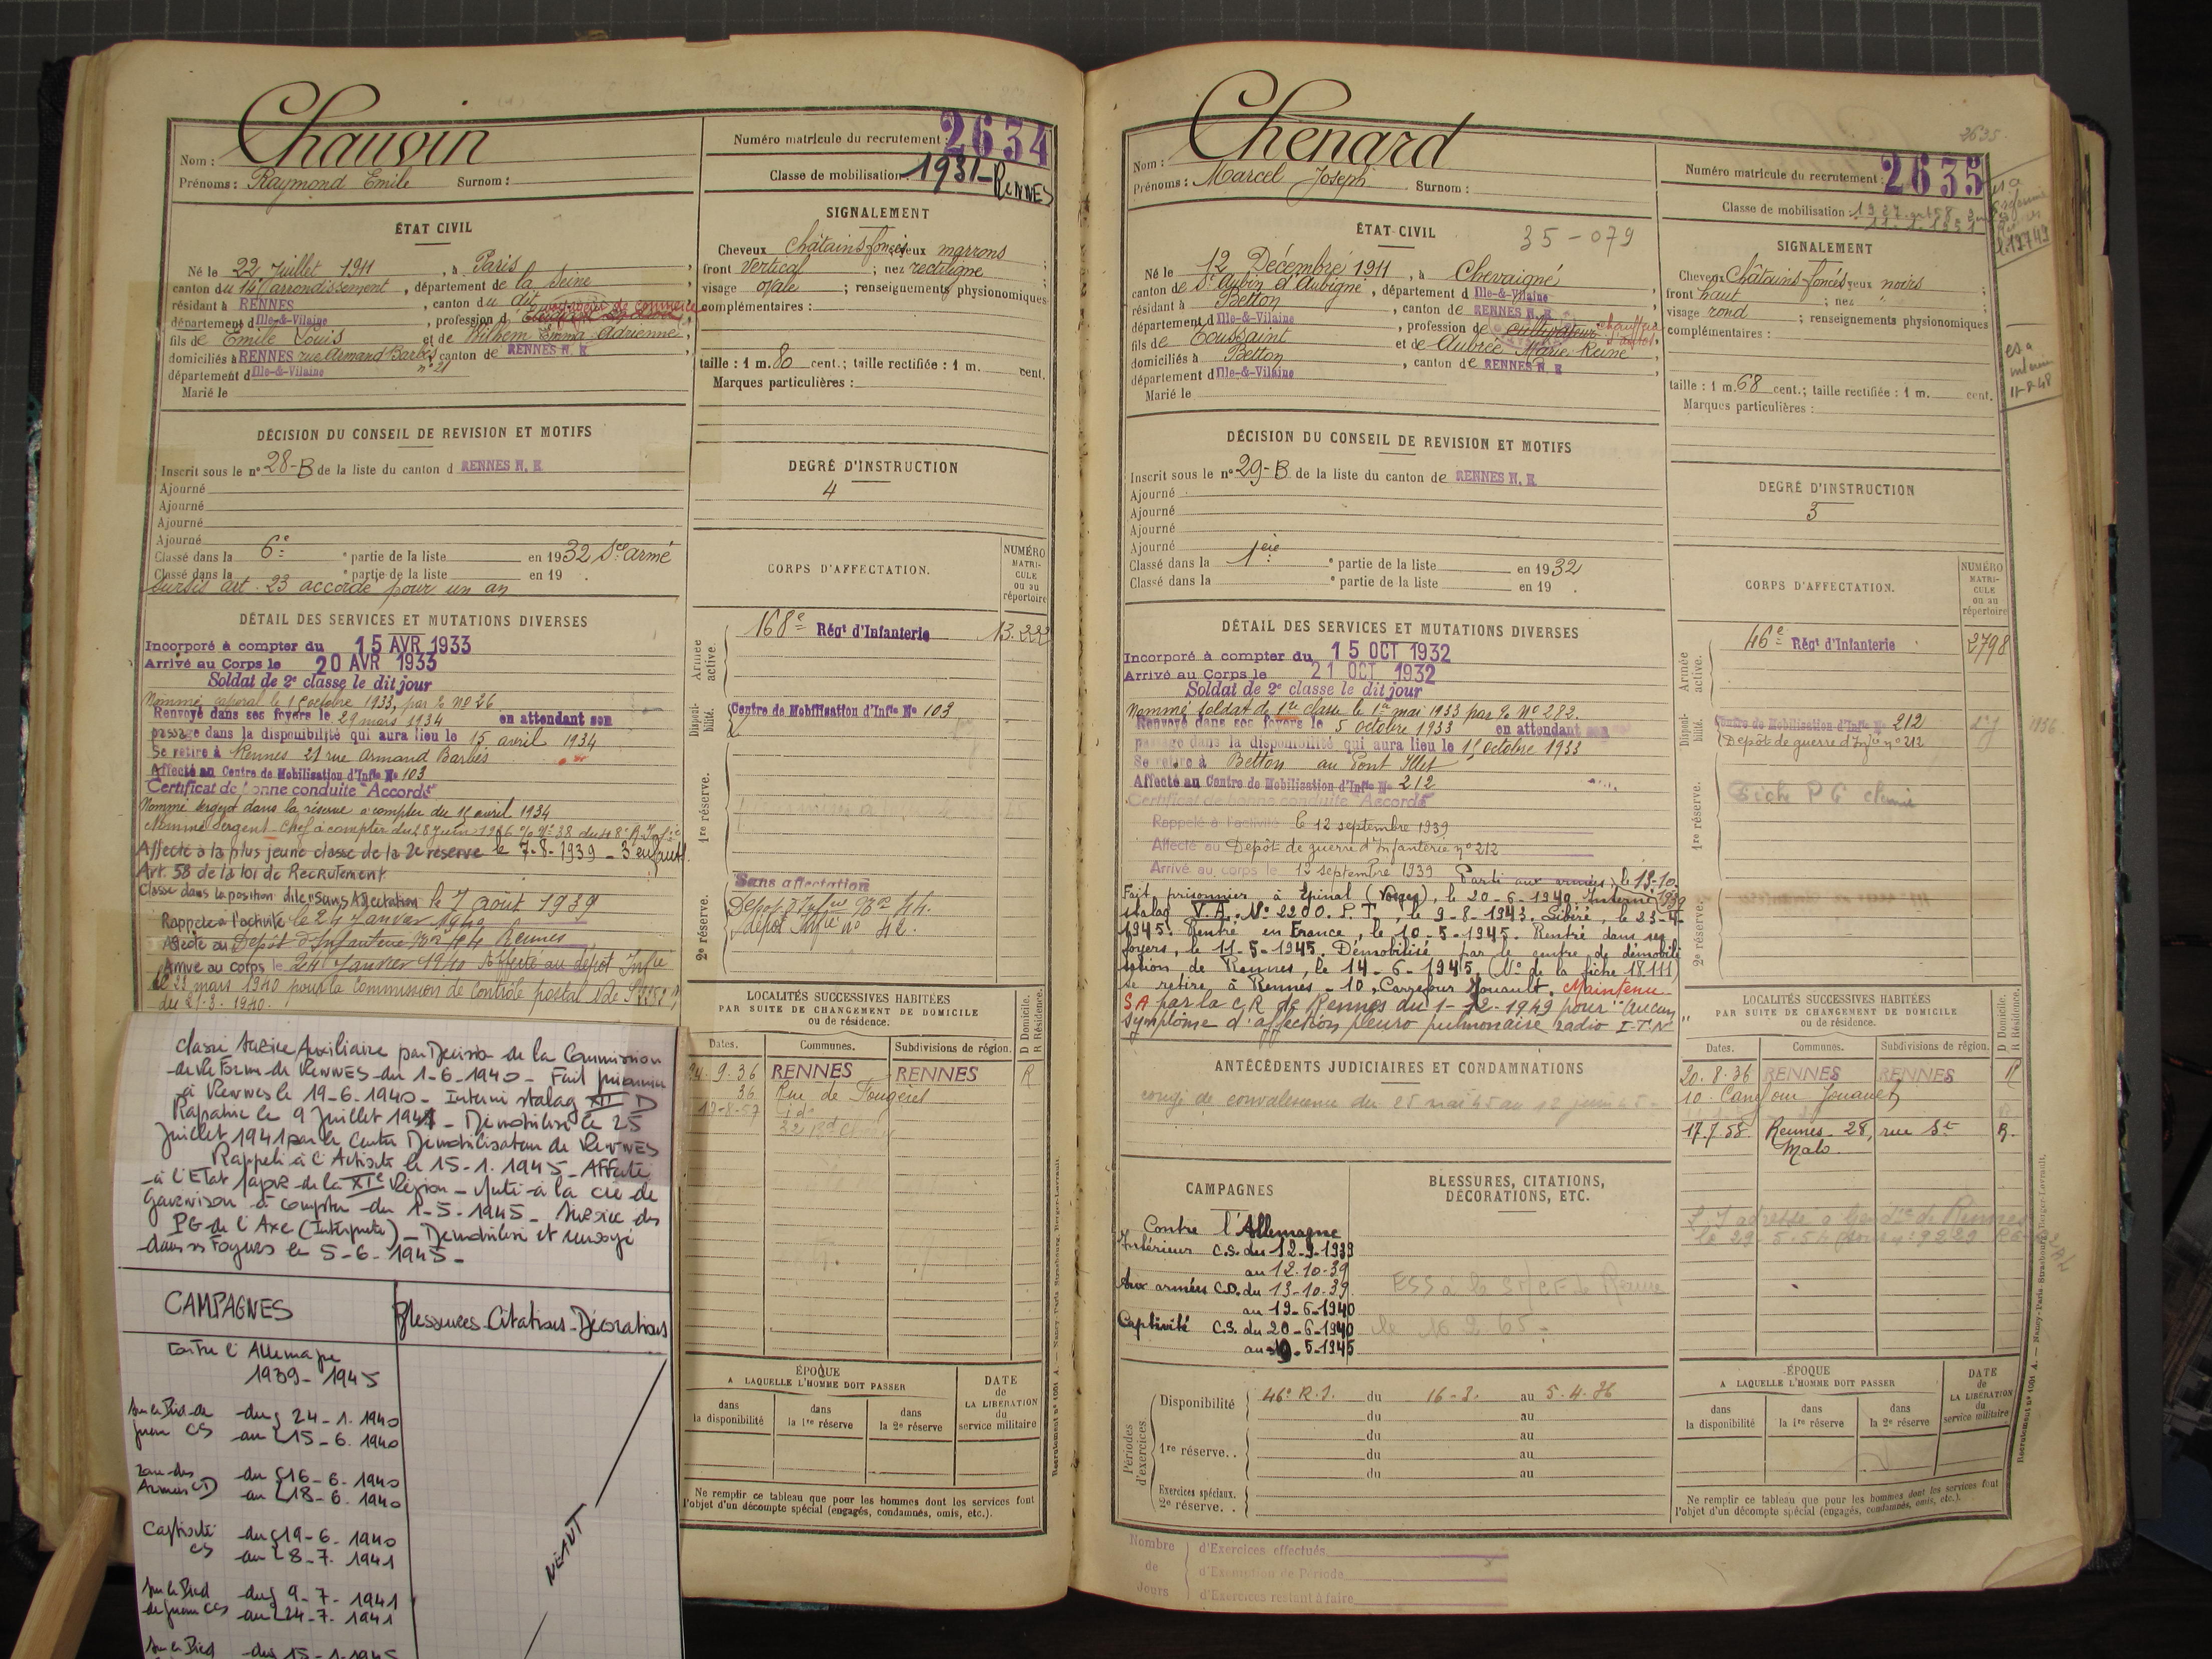 Nom : Chauvin
Prénoms : Raymond Emile Surnom :
Numéro matricule du recrutement : 2634
Classe de mobilisation : 1931 - RENNES
ÉTAT CIVIL
Né le 22 Juillet 1911, à Paris,
canton du 14e arrondissement, département de la Seine
résidant à RENNES, canton du dit
département d Ille-&-Vilaine, profession d voyageur de commerce
fils de Emile Louis et de Wilhem Emma Adrienne,
domiciliés à RENNES rue Armand Barbès n° 21 canton de RENNES N. E
département d Ille-&-Vilaine
Marié le
SIGNALEMENT
Cheveux châtains foncés yeux marrons ;
front vertical ; nez rectiligne
visage ovale ; renseignements physionomiques
complémentaires :
taille : 1 m. 80 cent.; taille rectifiée : 1 m. cent.
Marques particulières :
DÉCISION DU CONSEIL DE REVISION ET MOTIFS
Inscrit sous le n° 28-B de la liste du canton d RENNES N. E
Ajourné
Ajourné
Ajourné
Ajourné
Classé dans la 6e ° partie de la liste en 1932 Sce armé
Classé dans la ° partie de la liste en 19
Sursis art. 23 accordé pour un an
DEGRÉ D'INSTRUCTION
4
DÉTAIL DES SERVICES ET MUTATIONS DIVERSES
Incorporé à compter du 15 AVR 1933
Arrivé au Corps le 20 AVR 1933
Soldat de 2e classe le dit jour
Nommé caporal le 1 octobre 1933, par % N° 26
Renvoyé dans ses foyers le 29 mars 1934 en attendant son
passage dans la disponibilité qui aura lieu le 15 avril 1934
Se retire à Rennes 21 rue Armand Barbès
Affecté au Centre de Mobilisation d'Infie N° 103
Certificat de bonne conduite "Accordé"
Nommé sergent dans la réserve à compter du 15 avril 1934
Nommé Sergent-Chef à compter du 18 Juin 1936
Affecté à la plus jeune classe de la 2e réserve le 7-8-1939 - 3 enfants.
Art. 58 de la loi de Recrutement
Classé dans la position dite "Sans Affectation" le 7 août 1939
Rappelé à l'activité le 24 Janvier 1940
Affecté au Dépôt d'Infanterie N° 44 Rennes
Arrivé au corps le 24 Janvier 1940 Affecté au dépôt Infie
le 29 mars 1940 pour la Commission de Contrôle postal
du 27-3-1940.
classé service Auxiliaire par Décision de la Commission
de Réforme de RENNES du 1-6-1940 - Fait prisonnier
à Rennes le 19-6-1940 - Interné stalag XI D
Rapatrié le 9 Juillet 1941 - Démobilisé le 25
Juillet 1941 par le Centre Démobilisation de RENNES
Rappelé à l'Activité le 15-1-1945 - Affecté
à l'Etat Major de la XIe Région - Muté à la Cie de
Garnison à compter du 1-5-1945 - Service des
PG de l'Axe (Interprète) - Démobilisé et renvoyé
dans ses Foyers le 5-6-1945 -
CAMPAGNES
Blessures-Citations-Décorations
Contre l'Allemagne
1939-1945
Sur le Pied de guerre CS du 24-1-1940
au 15-6-1940
Zone des Armées CD du 16-6-1940
au 18-6-1940
Captivité CS du 19-6-1940
au 8-7-1941
Sur le Pied de guerre CS du 9-7-1941
au 24-7-1941
Sur le Pied du 15-1-1945
NÉANT
CORPS D'AFFECTATION.
NUMÉRO MATRICULE ou au répertoire
Armée active.
168e Régt d'Infanterie 13.222
Disponibilité.
Centre de Mobilisation d'Infie N° 103
1re réserve.
2e réserve.
Sans affectation
Dépôt d'Infie N° 44.
dépôt Infie n° 42.
LOCALITÉS SUCCESSIVES HABITÉES
PAR SUITE DE CHANGEMENT DE DOMICILE
ou de résidence.
D Domicile. R Résidence.
Dates. Communes. Subdivisions de région.
24-9-36 RENNES RENNES R
36 Rue de Fougères
ÉPOQUE
A LAQUELLE L'HOMME DOIT PASSER
dans la disponibilité
dans la 1re réserve
dans la 2e réserve
DATE de LA LIBÉRATION du service militaire
Ne remplir ce tableau que pour les hommes dont les services font
l'objet d'un décompte spécial (engagés, condamnés, omis, etc.).
Recrutement n° 1001 A. — Nancy-Paris-Strasbourg, Berger-Levrault.
2635
Nom : Chenard
Prénoms : Marcel Joseph Surnom :
Numéro matricule du recrutement : 2635
Classe de mobilisation : 1927
ÉTAT CIVIL 35-079
Né le 12 Décembre 1911, à Chevaigné
canton de St Aubin d'Aubigné, département d Ille-&-Vilaine
résidant à Betton, canton de RENNES N. E
département d Ille-&-Vilaine, profession de cultivateur chauffeur d'autos,
fils de Toussaint et de Aubrée Marie Reine
domiciliés à Betton, canton de RENNES N. E
département d Ille-&-Vilaine
Marié le
SIGNALEMENT
Cheveux Châtains foncés yeux noirs ;
front haut ; nez " ;
visage rond ; renseignements physionomiques
complémentaires :
taille : 1 m. 68 cent.; taille rectifiée : 1 m. cent.
Marques particulières :
DÉCISION DU CONSEIL DE REVISION ET MOTIFS
Inscrit sous le n° 29-B de la liste du canton de RENNES N. E
Ajourné
Ajourné
Ajourné
Ajourné
Classé dans la 1ère ° partie de la liste en 1932
Classé dans la ° partie de la liste en 19 .
DEGRÉ D'INSTRUCTION
3
DÉTAIL DES SERVICES ET MUTATIONS DIVERSES
Incorporé à compter du 15 OCT 1932
Arrivé au Corps le 21 OCT 1932
Soldat de 2e classe le dit jour
Nommé soldat de 1re classe le 1er mai 1933 par % N° 282.
Renvoyé dans ses foyers le 5 octobre 1933 en attendant son
passage dans la disponibilité qui aura lieu le 15 octobre 1933
Se retire à Betton au Pont Illet
Affecté au Centre de Mobilisation d'Infie N° 212
Certificat de bonne conduite "Accordé"
Rappelé à l'activité le 12 septembre 1939
Affecté au Dépôt de guerre d'Infanterie n° 212
Arrivé au corps le 12 septembre 1939 Parti aux armées, le 13-10-1939
Fait prisonnier à Epinal (Vosges), le 20-6-1940. Interné
stalag V.A. N° 2200. P.T, le 9-8-1943. Libéré, le 23-4-
1945. Rentré en France, le 10-5-1945. Rentré dans ses
foyers, le 11-5-1945. Démobilisé par le centre de démobili
sation de Rennes, le 14-6-1945. (N° de la fiche 18111)
Se retire à Rennes - 10, Carrefour Jouault. Maintenu
SA par la CR de Rennes du 1-12-1949 pour "Aucun
symptôme d'affection pleuro pulmonaire radio I.T.N"
ANTÉCÉDENTS JUDICIAIRES ET CONDAMNATIONS
congé de convalescence du 25 mai 45 au 12 juin 45 -
CAMPAGNES
Contre l'Allemagne
Intérieur C.S. du 12-9-1939
au 12-10-39
Aux armées C.D. du 13-10-39
au 19-6-1940
Captivité C.S. du 20-6-1940
au 9-5-1945
BLESSURES, CITATIONS,
DÉCORATIONS, ETC.
Périodes d'exercices.
Disponibilité 46e R.I. du 16-3. au 5.4.36
du au
1re réserve. . du au
du au
du au
Exercices spéciaux.
2e réserve. .
Nombre de Jours
d'Exercices effectués
d'Exemption de Période
d'Exercices restant à faire
CORPS D'AFFECTATION.
NUMÉRO MATRICULE ou au répertoire
Armée active.
46e Régt d'Infanterie 2798
Disponibilité.
Centre de Mobilisation d'Infie N° 212
(Dépôt de guerre d'Infie n° 212
1re réserve.
Fiche PG
2e réserve.
LOCALITÉS SUCCESSIVES HABITÉES
PAR SUITE DE CHANGEMENT DE DOMICILE
ou de résidence.
D Domicile. R Résidence.
Dates. Communes. Subdivisions de région.
20.8.36 RENNES RENNES R
10. Carrefour Jouault
17.7.58. Rennes. 28, rue St R.
Malo.
ÉPOQUE
A LAQUELLE L'HOMME DOIT PASSER
dans la disponibilité
dans la 1re réserve
dans la 2e réserve
DATE de LA LIBÉRATION du service militaire
Ne remplir ce tableau que pour les hommes dont les services font
l'objet d'un décompte spécial (engagés, condamnés, omis, etc.).
Recrutement n° 1001 A. — Nancy-Paris-Strasbourg, Berger-Levrault.